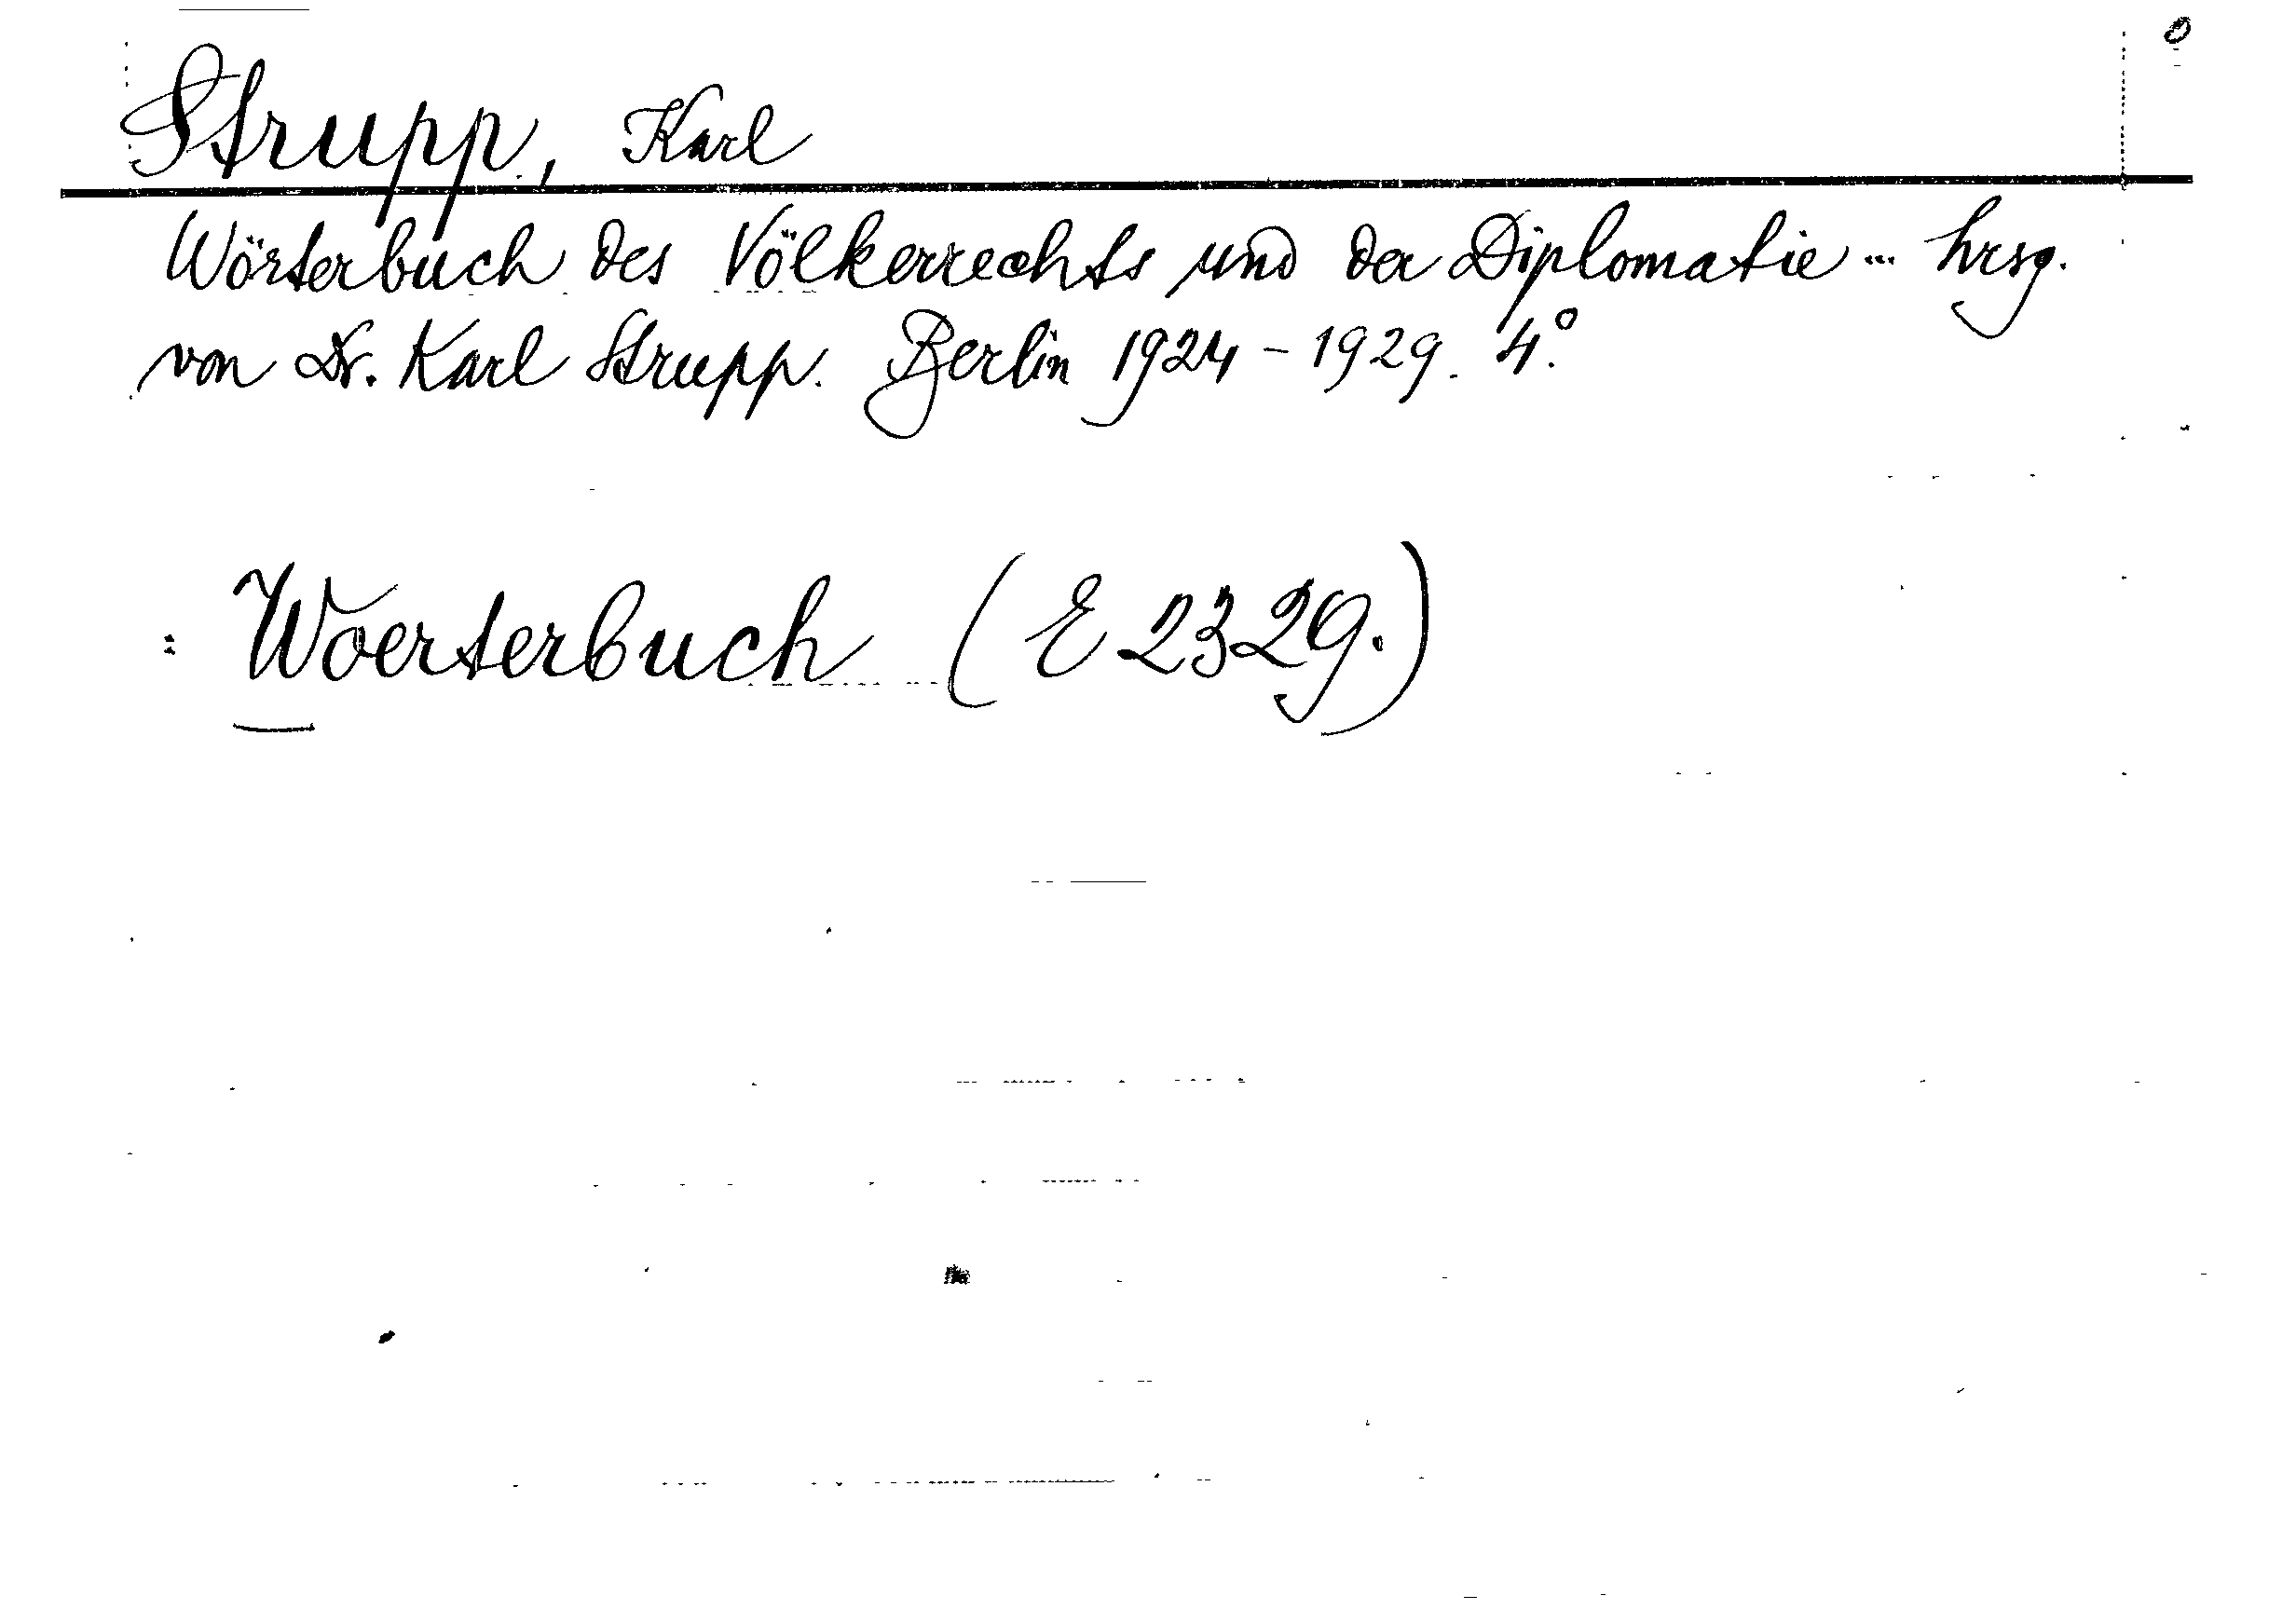 Strupp, Karl
Wörterbuch des Völkerrechts und der Diplomatie ... hrsg.
von Dr. Karl Strupp. Berlin 1924 - 1929. 4.º
: Woerterbuch (E 2329.)